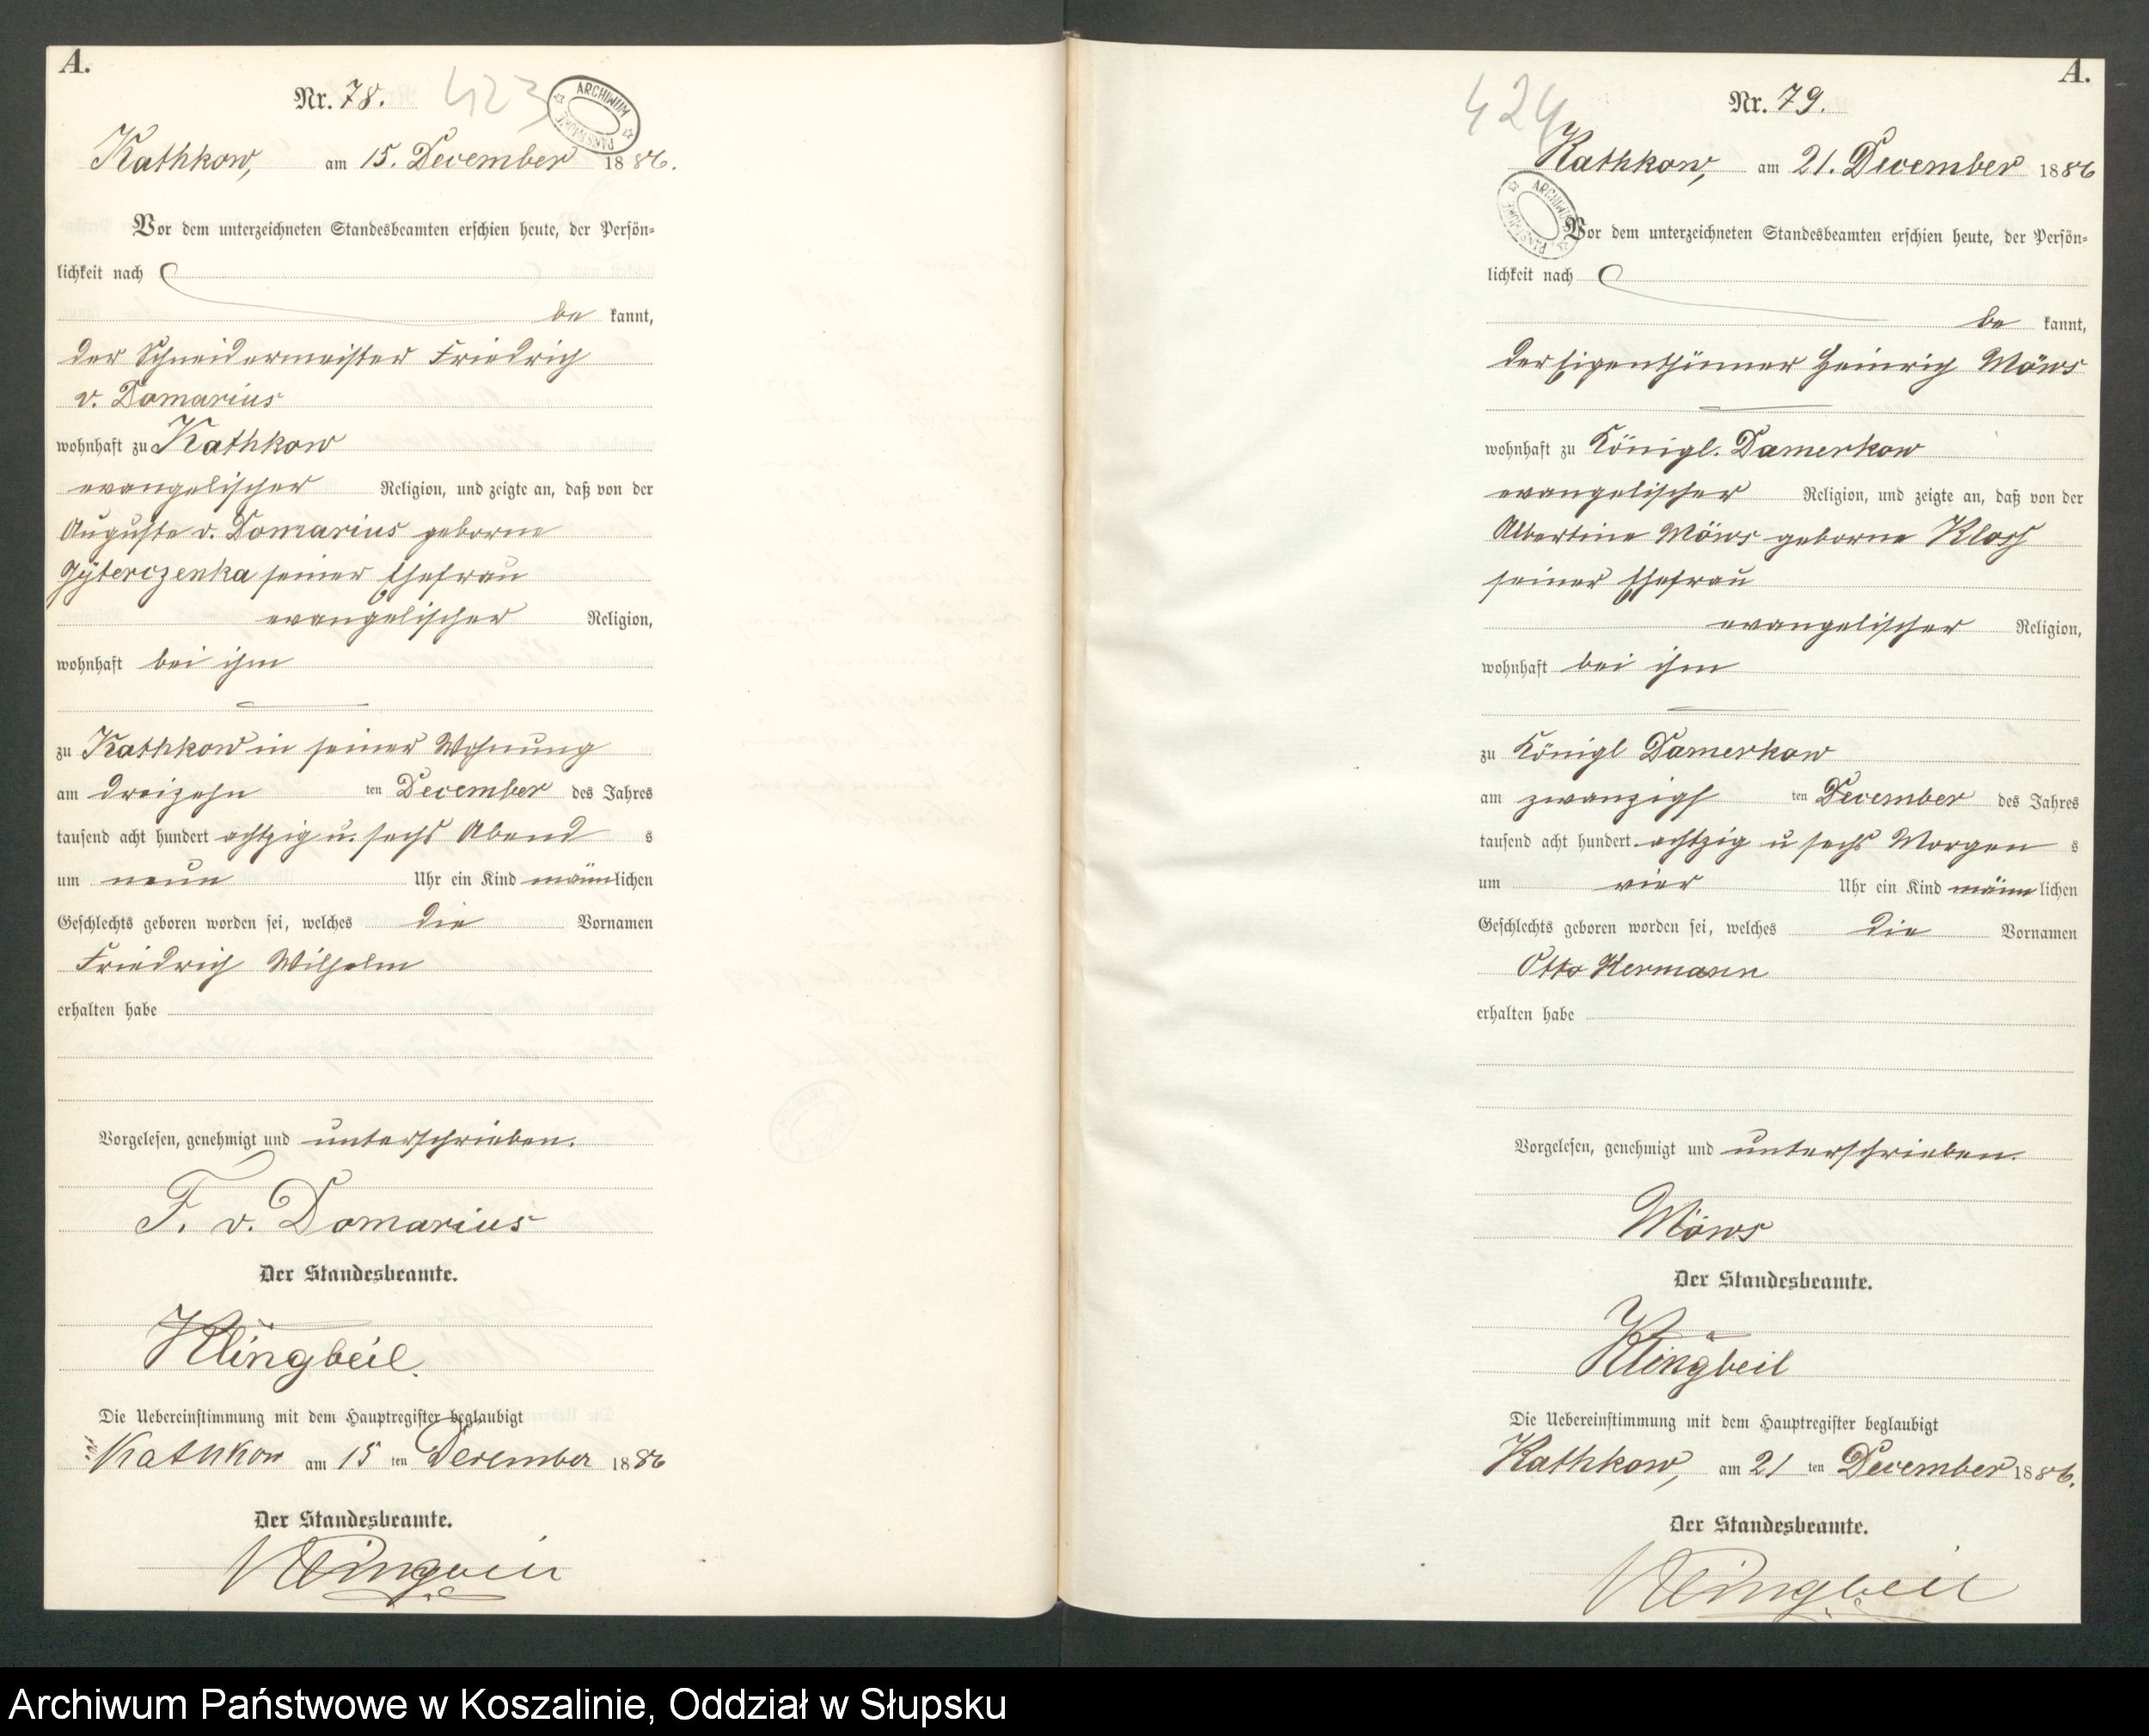 A.
Nr. 78.
423
ARCHIWUM PAŃSTWOWE
Kathkow, am 15. December 1886.
Vor dem unterzeichneten Standesbeamten erschien heute, der Persön-
lichkeit nach
be kannt,
der Schneidermeister Friedrich
v. Domarius
wohnhaft zu Kathkow
evangelischer Religion, und zeigte an, daß von der
Auguste v. Domarius geborne
seiner Ehefrau
evangelischer Religion,
wohnhaft bei ihm
zu Kathkow in seiner Wohnung
am dreizehn ten December des Jahres
tausend acht hundert achtzig u. sechs Abend s
um neun Uhr ein Kind männlichen
Geschlechts geboren worden sei, welches die Vornamen
Friedrich Wilhelm
erhalten habe
Vorgelesen, genehmigt und unterschrieben.
F. v. Domarius
Der Standesbeamte.
Klingbeil.
Die Uebereinstimmung mit dem Hauptregister beglaubigt
Kathkow am 15 ten December 1886
Der Standesbeamte.
Klingbeil
A.
Nr. 79.
424
Kathkow, am 21. December 1886
ARCHIWUM PAŃSTWOWE
Vor dem unterzeichneten Standesbeamten erschien heute, der Persön-
lichkeit nach
be kannt,
der Eigenthümer Heinrich Möws
wohnhaft zu Königl. Damerkow
evangelischer Religion, und zeigte an, daß von der
Albertine Möws geborne Kloss
seiner Ehefrau
evangelischer Religion,
wohnhaft bei ihm
zu Königl Damerkow
am zwanzigs ten December des Jahres
tausend acht hundert achtzig u sechs Morgen s
um vier Uhr ein Kind männ lichen
Geschlechts geboren worden sei, welches die Vornamen
Otto Hermann
erhalten habe
Vorgelesen, genehmigt und unterschrieben.
Möws
Der Standesbeamte.
Klingbeil
Die Uebereinstimmung mit dem Hauptregister beglaubigt
Kathkow, am 21 ten December 1886.
Der Standesbeamte.
Klingbeil
Archiwum Państwowe w Koszalinie, Oddział w Słupsku